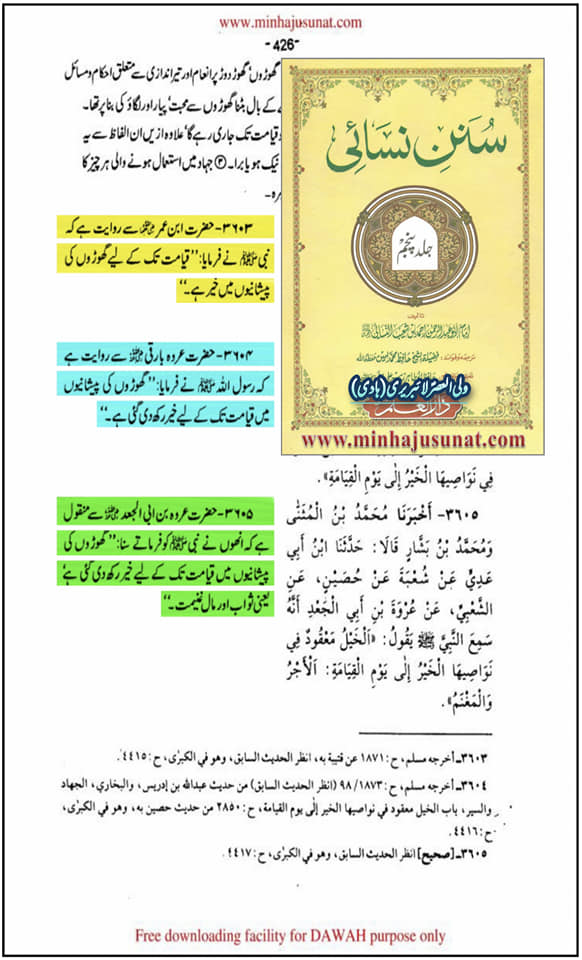 www.minhajusunat.com
-426-
گھوڑوں، گھوڑ دوڑ پر انعام اور تیر اندازی سے متعلق احکام و مسائل
کے بال بٹنا گھوڑوں سے محبت، پیار اور لگاؤ کی بنا پر تھا۔
قیامت تک جاری رہے گا، علاوہ ازیں ان الفاظ سے یہ
نیک ہو یا برا۔ ③ جہاد میں استعمال ہونے والی ہر چیز کا
سُنَنِ نسائی
جلد پنجم
امام ابو عبدالرحمن احمد بن شعیب النسائی
ولی العصر لائبریری (ہادی)
دارالعلم
www.minhajusunat.com
۳۶۰۳- حضرت ابن عمر رضی اللہ عنہ سے روایت ہے کہ
نبی ﷺ نے فرمایا: ’’قیامت تک کے لیے گھوڑوں کی
پیشانیوں میں خیر ہے۔‘‘
۳۶۰۴- حضرت عروہ بارقی رضی اللہ عنہ سے روایت ہے
کہ رسول اللہ ﷺ نے فرمایا: ’’گھوڑوں کی پیشانیوں
میں قیامت تک کے لیے خیر رکھ دی گئی ہے۔‘‘
فِي نَوَاصِيهَا الْخَيْرُ إِلَى يَوْمِ الْقِيَامَةِ».
۳۶۰۵- حضرت عروہ بن ابی الجعد رضی اللہ عنہ سے منقول
ہے کہ انھوں نے نبی ﷺ کو فرماتے سنا: ’’گھوڑوں کی
پیشانیوں میں قیامت تک کے لیے خیر رکھ دی گئی ہے،
یعنی ثواب اور مال غنیمت۔‘‘
٣٦٠٥- أَخْبَرَنَا مُحَمَّدُ بْنُ الْمُثَنَّى
وَمُحَمَّدُ بْنُ بَشَّارٍ قَالَا: حَدَّثَنَا ابْنُ أَبِي
عَدِيٍّ عَنْ شُعْبَةَ عَنْ حُصَيْنٍ، عَنِ
الشَّعْبِيِّ، عَنْ عُرْوَةَ بْنِ أَبِي الْجَعْدِ أَنَّهُ
سَمِعَ النَّبِيَّ ﷺ يَقُولُ: «اَلْخَيْلُ مَعْقُودٌ فِي
نَوَاصِيهَا الْخَيْرُ إِلَى يَوْمِ الْقِيَامَةِ: اَلْأَجْرُ
وَالْمَغْنَمُ».
٣٦٠٣ـ أخرجه مسلم، ح: ١٨٧١ عن قتيبة به، انظر الحديث السابق، وهو في الكبرى، ح: ٤٤١٥.
٣٦٠٤ـ أخرجه مسلم، ح: ١٨٧٣/ ٩٨ (انظر الحديث السابق) من حديث عبدالله بن إدريس، والبخاري، الجهاد
والسير، باب الخيل معقود في نواصيها الخير إلى يوم القيامة، ح: ٢٨٥٠ من حديث حصين به، وهو في الكبرى،
ح: ٤٤١٦.
٣٦٠٥ـ [صحيح] انظر الحديث السابق، وهو في الكبرى، ح: ٤٤١٧.
Free downloading facility for DAWAH purpose only